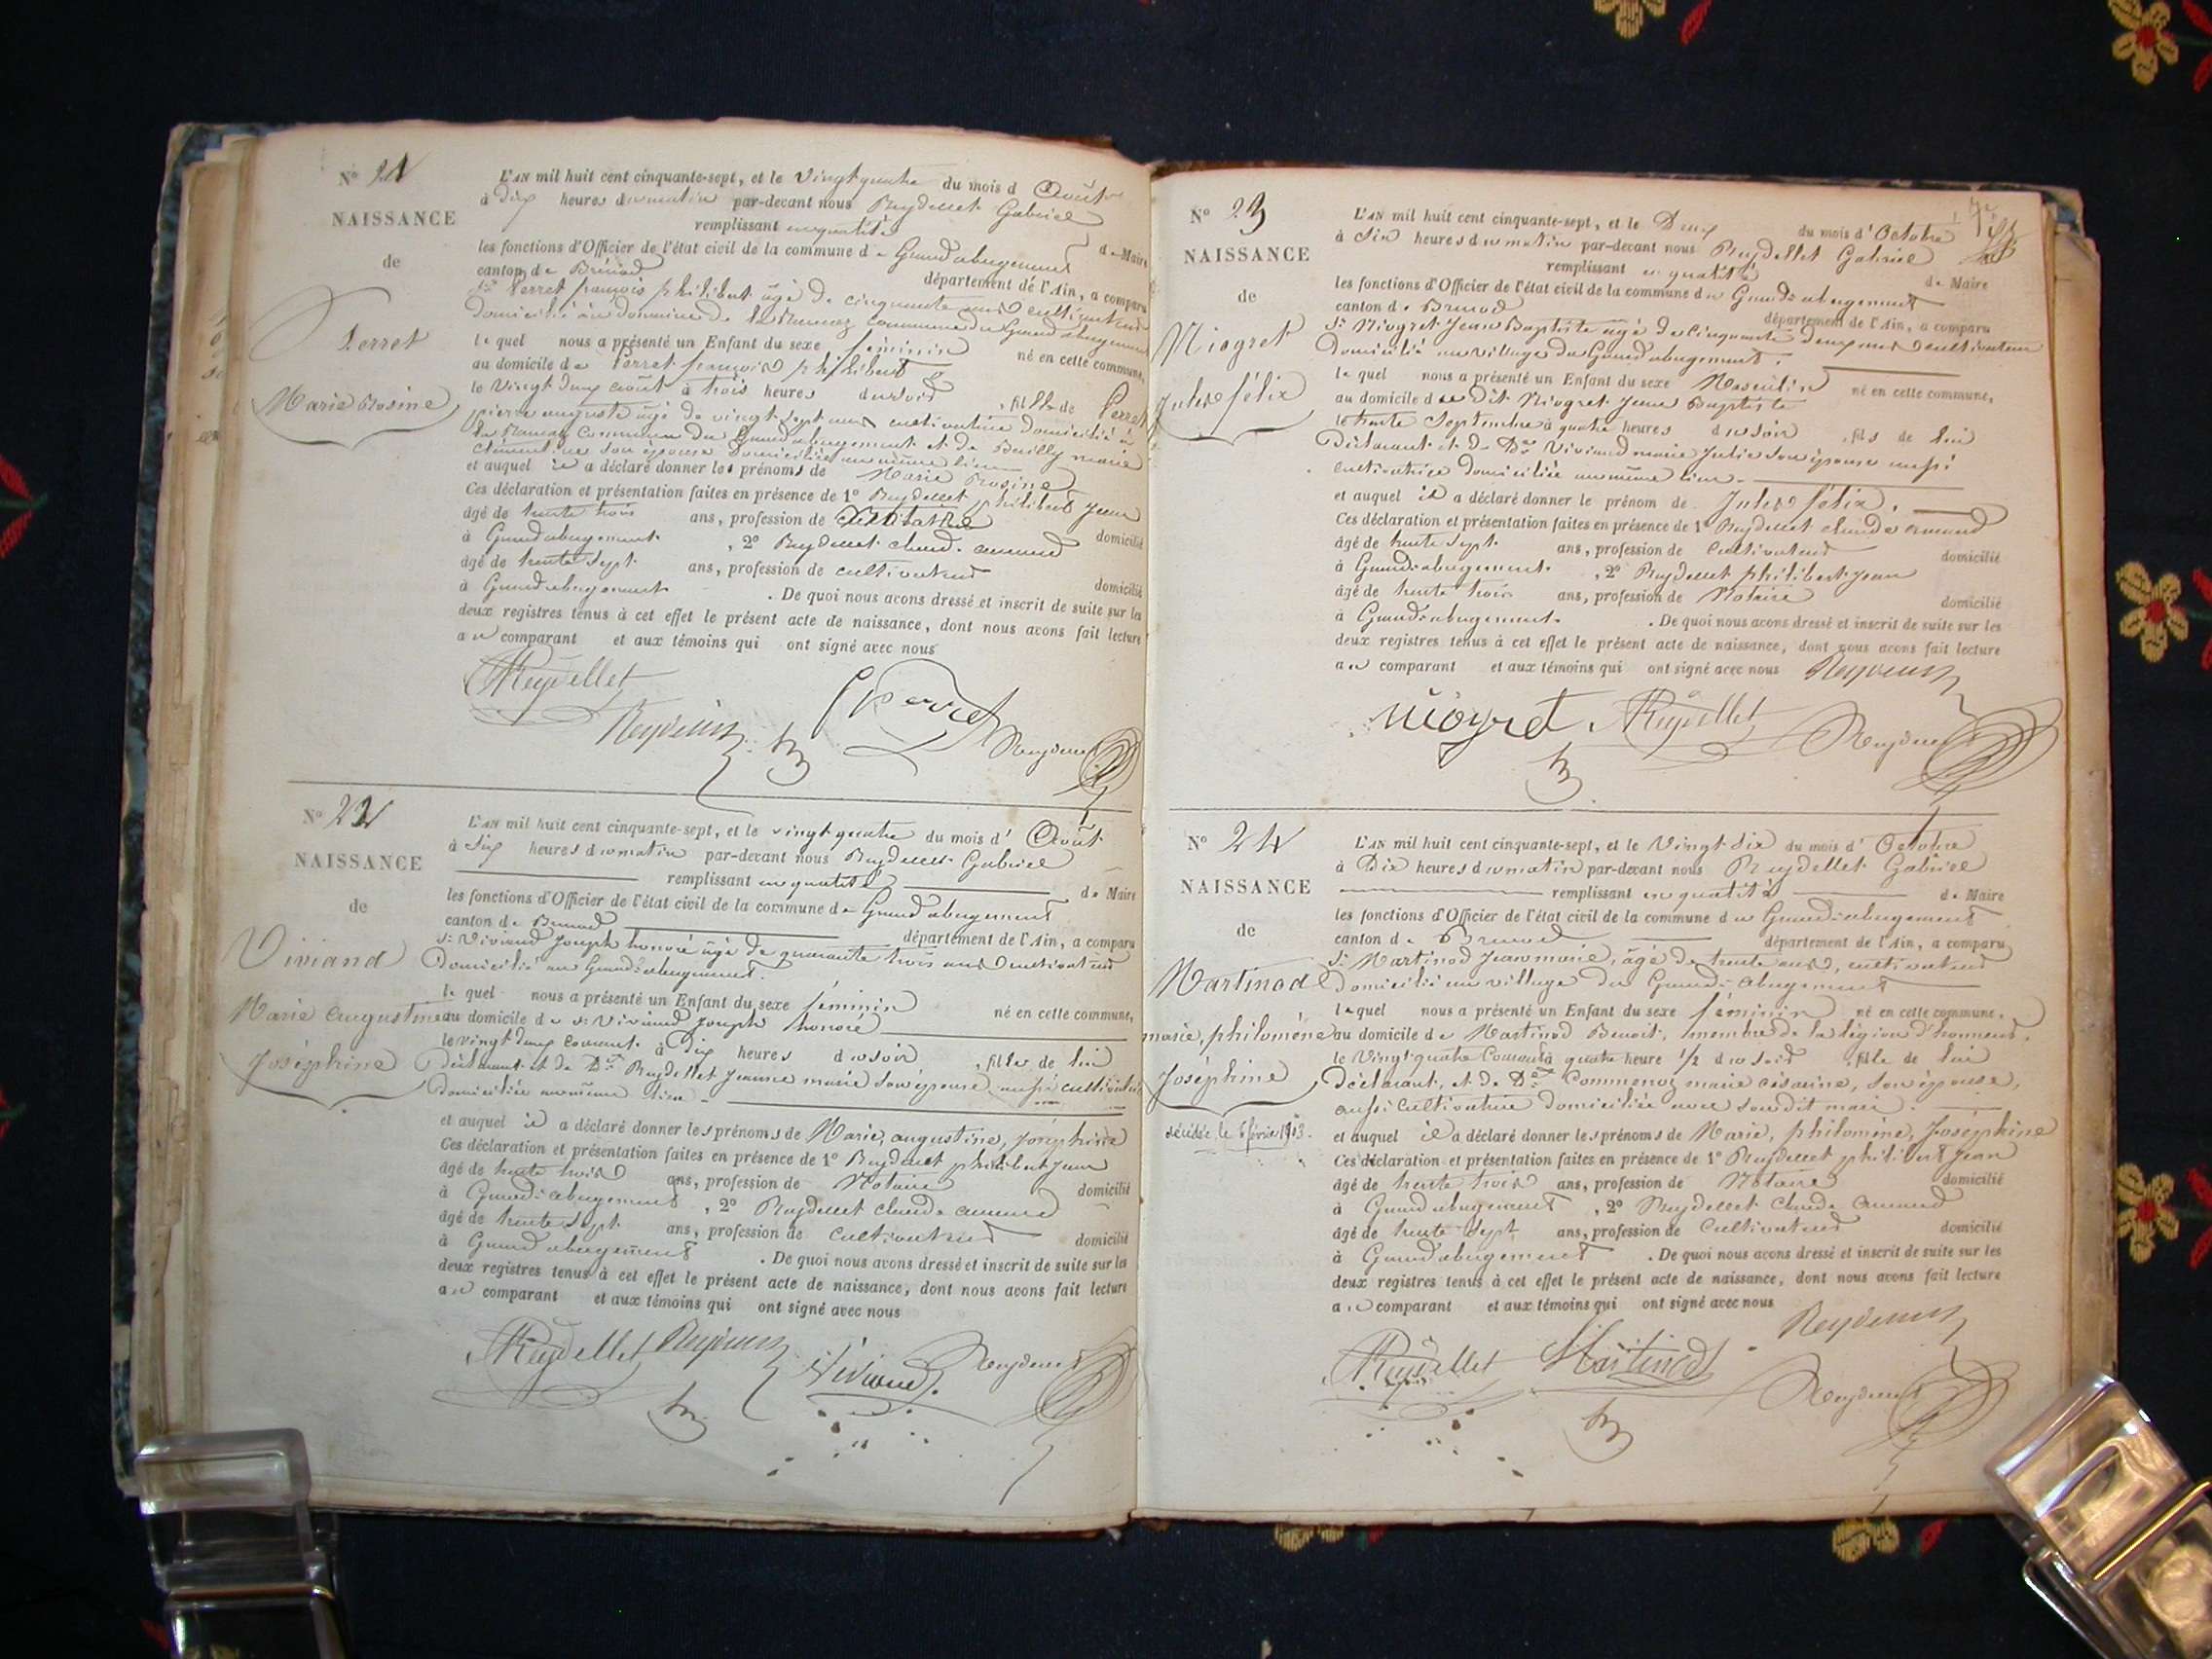 Nº 21
NAISSANCE
de
Perret
Marie Rosine
L'AN mil huit cent cinquante-sept, et le vingt quatre du mois d Août
à dix heures du matin par-devant nous Ruydellet Gabriel
remplissant en qualité de Maire
les fonctions d'Officier de l'état civil de la commune de Grand abergement
canton de Brénod département de l'Ain, a comparu
Sr Perret françois philibert âgé de cinquante ans cultivateur
domicilié au domaine de la commune du Grand abergement
lequel nous a présenté un Enfant du sexe féminin né en cette commune,
au domicile de Perret françois philibert
le vingt deux août à trois heures du soir , fille de Perret
pierre auguste âgé de vingt sept ans cultivateur domicilié à
la commune du Grand abergement et de Bailly marie
Clémentine son épouse domiciliée au même lieu
et auquel il a déclaré donner les prénoms de Marie Rosine
Ces déclaration et présentation faites en présence de 1º Ruydellet philibert Jean
âgé de trente trois ans, profession de Notaire domicilié
à Grand abergement , 2º Ruydellet claude armand
âgé de trente sept ans, profession de cultivateur domicilié
à Grand abergement . De quoi nous avons dressé et inscrit de suite sur les
deux registres tenus à cet effet le présent acte de naissance, dont nous avons fait lecture
au comparant et aux témoins qui ont signé avec nous
Ruydellet
Perret
Nº 22
NAISSANCE
de
Viviand
Marie augustine
Joséphine
L'AN mil huit cent cinquante-sept, et le vingt quatre du mois d' Août
à dix heures du matin par-devant nous Ruydellet Gabriel
remplissant en qualité de Maire
les fonctions d'Officier de l'état civil de la commune de Grand abergement
canton de Brenod département de l'Ain, a comparu
Sr Viviand Joseph honoré âgé de quarante trois ans cultivateur
domicilié au Grand abergement.
lequel nous a présenté un Enfant du sexe féminin né en cette commune,
au domicile de Sr Viviand Joseph honoré
le vingt deux courant à dix heures du soir , fille de lui
déclarant et de De Ruydellet Jeanne marie son épouse aussi cultivatrice
domiciliée au même lieu
et auquel il a déclaré donner les prénoms de Marie, augustine, Joséphine
Ces déclaration et présentation faites en présence de 1º Ruydellet philibert Jean
âgé de trente trois ans, profession de Notaire domicilié
à Grand abergement , 2º Ruydellet claude armand
âgé de trente sept ans, profession de cultivateur domicilié
à Grand abergement . De quoi nous avons dressé et inscrit de suite sur les
deux registres tenus à cet effet le présent acte de naissance, dont nous avons fait lecture
au comparant et aux témoins qui ont signé avec nous
Ruydellet Viviand
Nº 23
NAISSANCE
de
Niogret
Jules félix
L'AN mil huit cent cinquante-sept, et le Deux du mois d' Octobre
à Six heures du matin par-devant nous Ruydellet Gabriel
remplissant en qualité de Maire
les fonctions d'Officier de l'état civil de la commune du Grand abergement
canton de Brenod département de l'Ain, a comparu
Sr Niogret Jean Baptiste âgé de cinquante deux ans cultivateur
domicilié au village du Grand abergement.
lequel nous a présenté un Enfant du sexe Masculin né en cette commune,
au domicile du dit Niogret Jean Baptiste
le trente Septembre à quatre heures du soir , fils de lui
déclarant et de De Viviand marie Julie son épouse aussi
cultivatrice domiciliée au même lieu
et auquel il a déclaré donner le prénom de Jules félix.
Ces déclaration et présentation faites en présence de 1º Ruydellet claude armand
âgé de trente sept ans, profession de cultivateur domicilié
à Grand abergement , 2º Ruydellet philibert Jean
âgé de trente trois ans, profession de Notaire domicilié
à Grand abergement . De quoi nous avons dressé et inscrit de suite sur les
deux registres tenus à cet effet le présent acte de naissance, dont nous avons fait lecture
au comparant et aux témoins qui ont signé avec nous
niogret Ruydellet
Nº 24
NAISSANCE
de
Martinod
marie, philomène
Joséphine
décédée le 6 février 1913.
L'AN mil huit cent cinquante-sept, et le Vingt Six du mois d' Octobre
à Dix heures du matin par-devant nous Ruydellet Gabriel
remplissant en qualité de Maire
les fonctions d'Officier de l'état civil de la commune du Grand abergement
canton de Brenod département de l'Ain, a comparu
Sr Martinod Jean marie, âgé de trente ans, cultivateur
domicilié au village du Grand abergement
lequel nous a présenté un Enfant du sexe féminin né en cette commune,
au domicile de Martinod Benoit, membre de la légion d'honneur,
le Vingt quatre Courant à quatre heure 1/2 du soir , fille de lui
déclarant, et de De Commenoz marie césarine, son épouse,
aussi cultivatrice domiciliée avec son dit mari.
et auquel il a déclaré donner les prénoms de Marie, philomène, Joséphine
Ces déclaration et présentation faites en présence de 1º Ruydellet philibert Jean
âgé de trente trois ans, profession de Notaire domicilié
à Grand abergement , 2º Ruydellet claude armand
âgé de trente Sept ans, profession de Cultivateur domicilié
à Grand abergement . De quoi nous avons dressé et inscrit de suite sur les
deux registres tenus à cet effet le présent acte de naissance, dont nous avons fait lecture
au comparant et aux témoins qui ont signé avec nous
Ruydellet Martinod